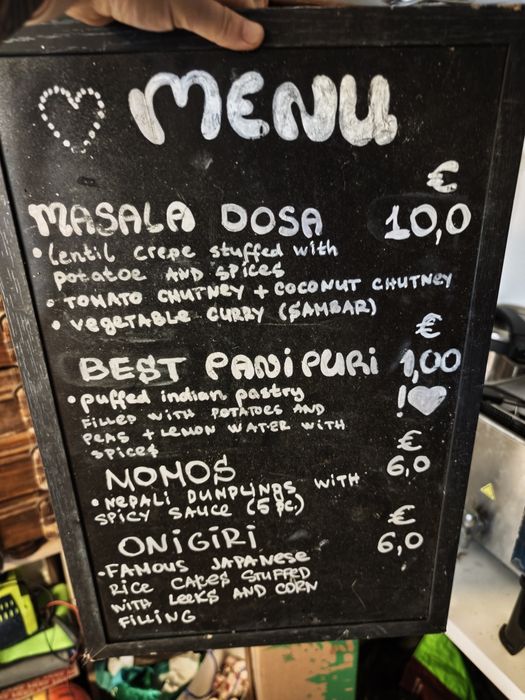 MENU
€
MASALA DOSA 10,0
• Lentil crepe stuffed with
potatoe AND spices
• TOMATO CHUTNEY + COCONUT CHUTNEY
• vegeTABLE CURRY (SAMBAR)
€
BEST PANi PURi 1,00
• puffed indian pastry !
FILLED WITH POTATOES AND
PEAS + LEMON WATER WITH
SPICES
€
MOMOS 6,0
• NEPALI DUMPLINGS WITH
SPICY SAUCE (5 PC.)
€
ONiGiRi 6,0
• FAMOUS JAPANESE
RICE CAKES STUFFED
WITH LEEKS AND CORN
FILLING